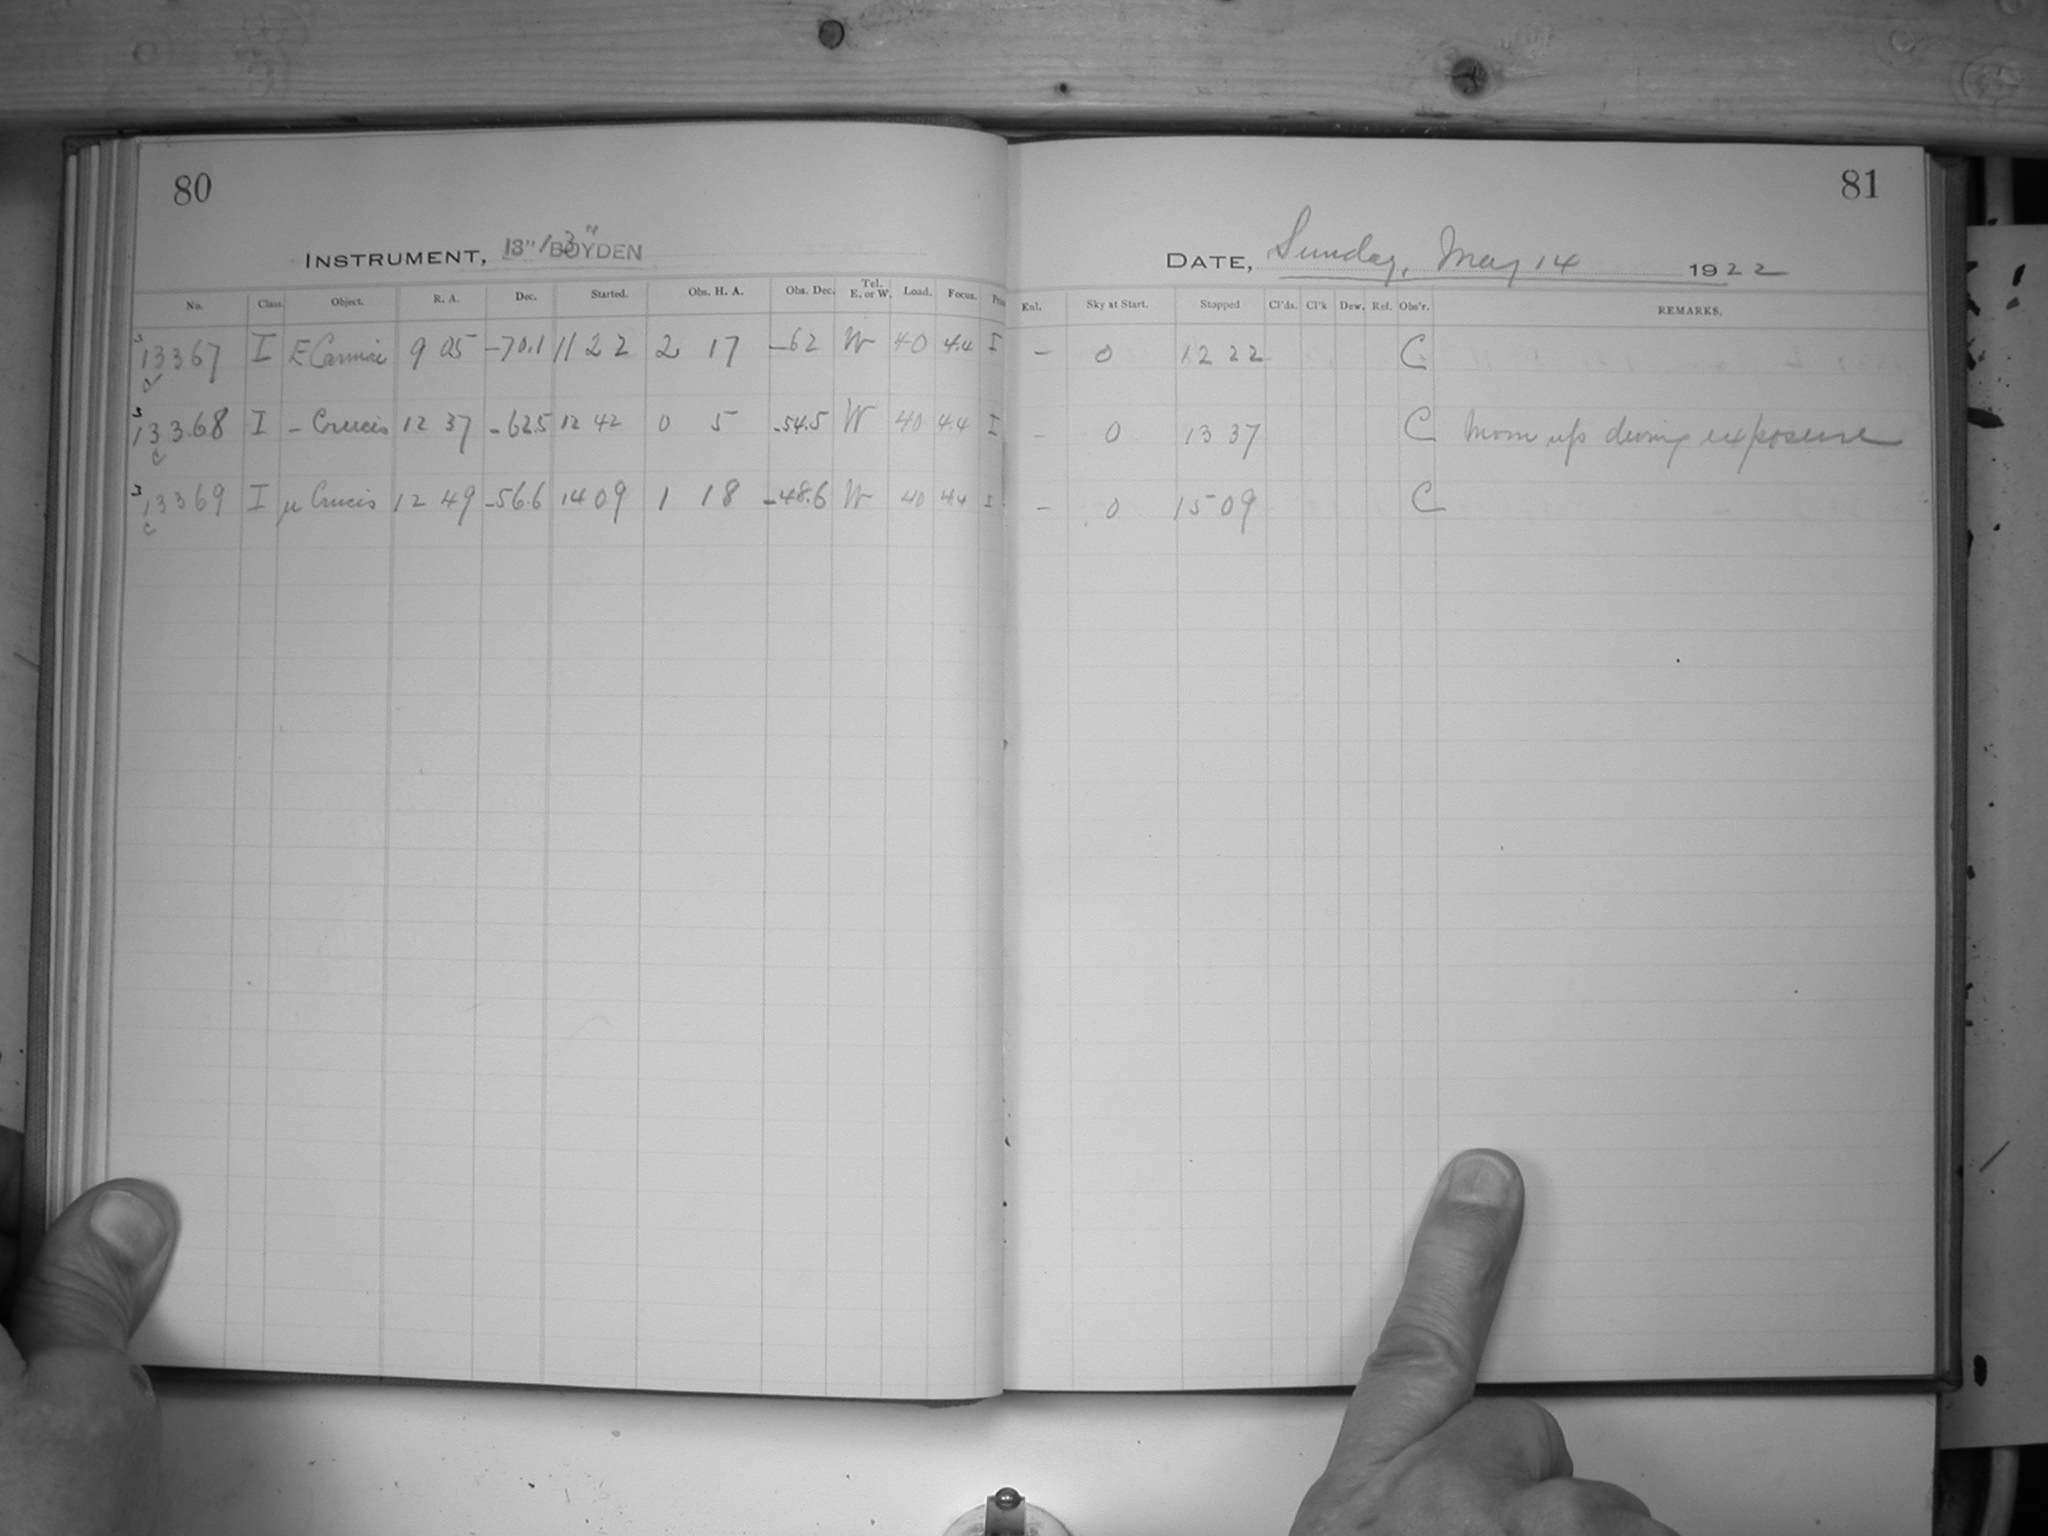 80
INSTRUMENT, 13" BOYDEN 3"
No. Class. Object. R. A. Dec. Started. Obs. H. A. Obs. Dec. Tel. E. or W. Load. Focus.
3
13367 I E Carinae 9 05 -70.1 11 22 2 17 -62 W 40 4.4 I
c
3
13368 I - Crucis 12 37 -62.5 12 42 0 5 -54.5 W 40 4.4 I
c
3
13369 I μ Crucis 12 49 -56.6 14 09 1 18 -48.6 W 40 4.4 I
c
81
DATE, Sunday, May 14 1922
Enl. Sky at Start. Stopped Cl'ds. Cl'k Dew. Ref. Obs'r. REMARKS.
- 0 12 22 C
- 0 13 37 C Moon up during exposure
- 0 15 09 C